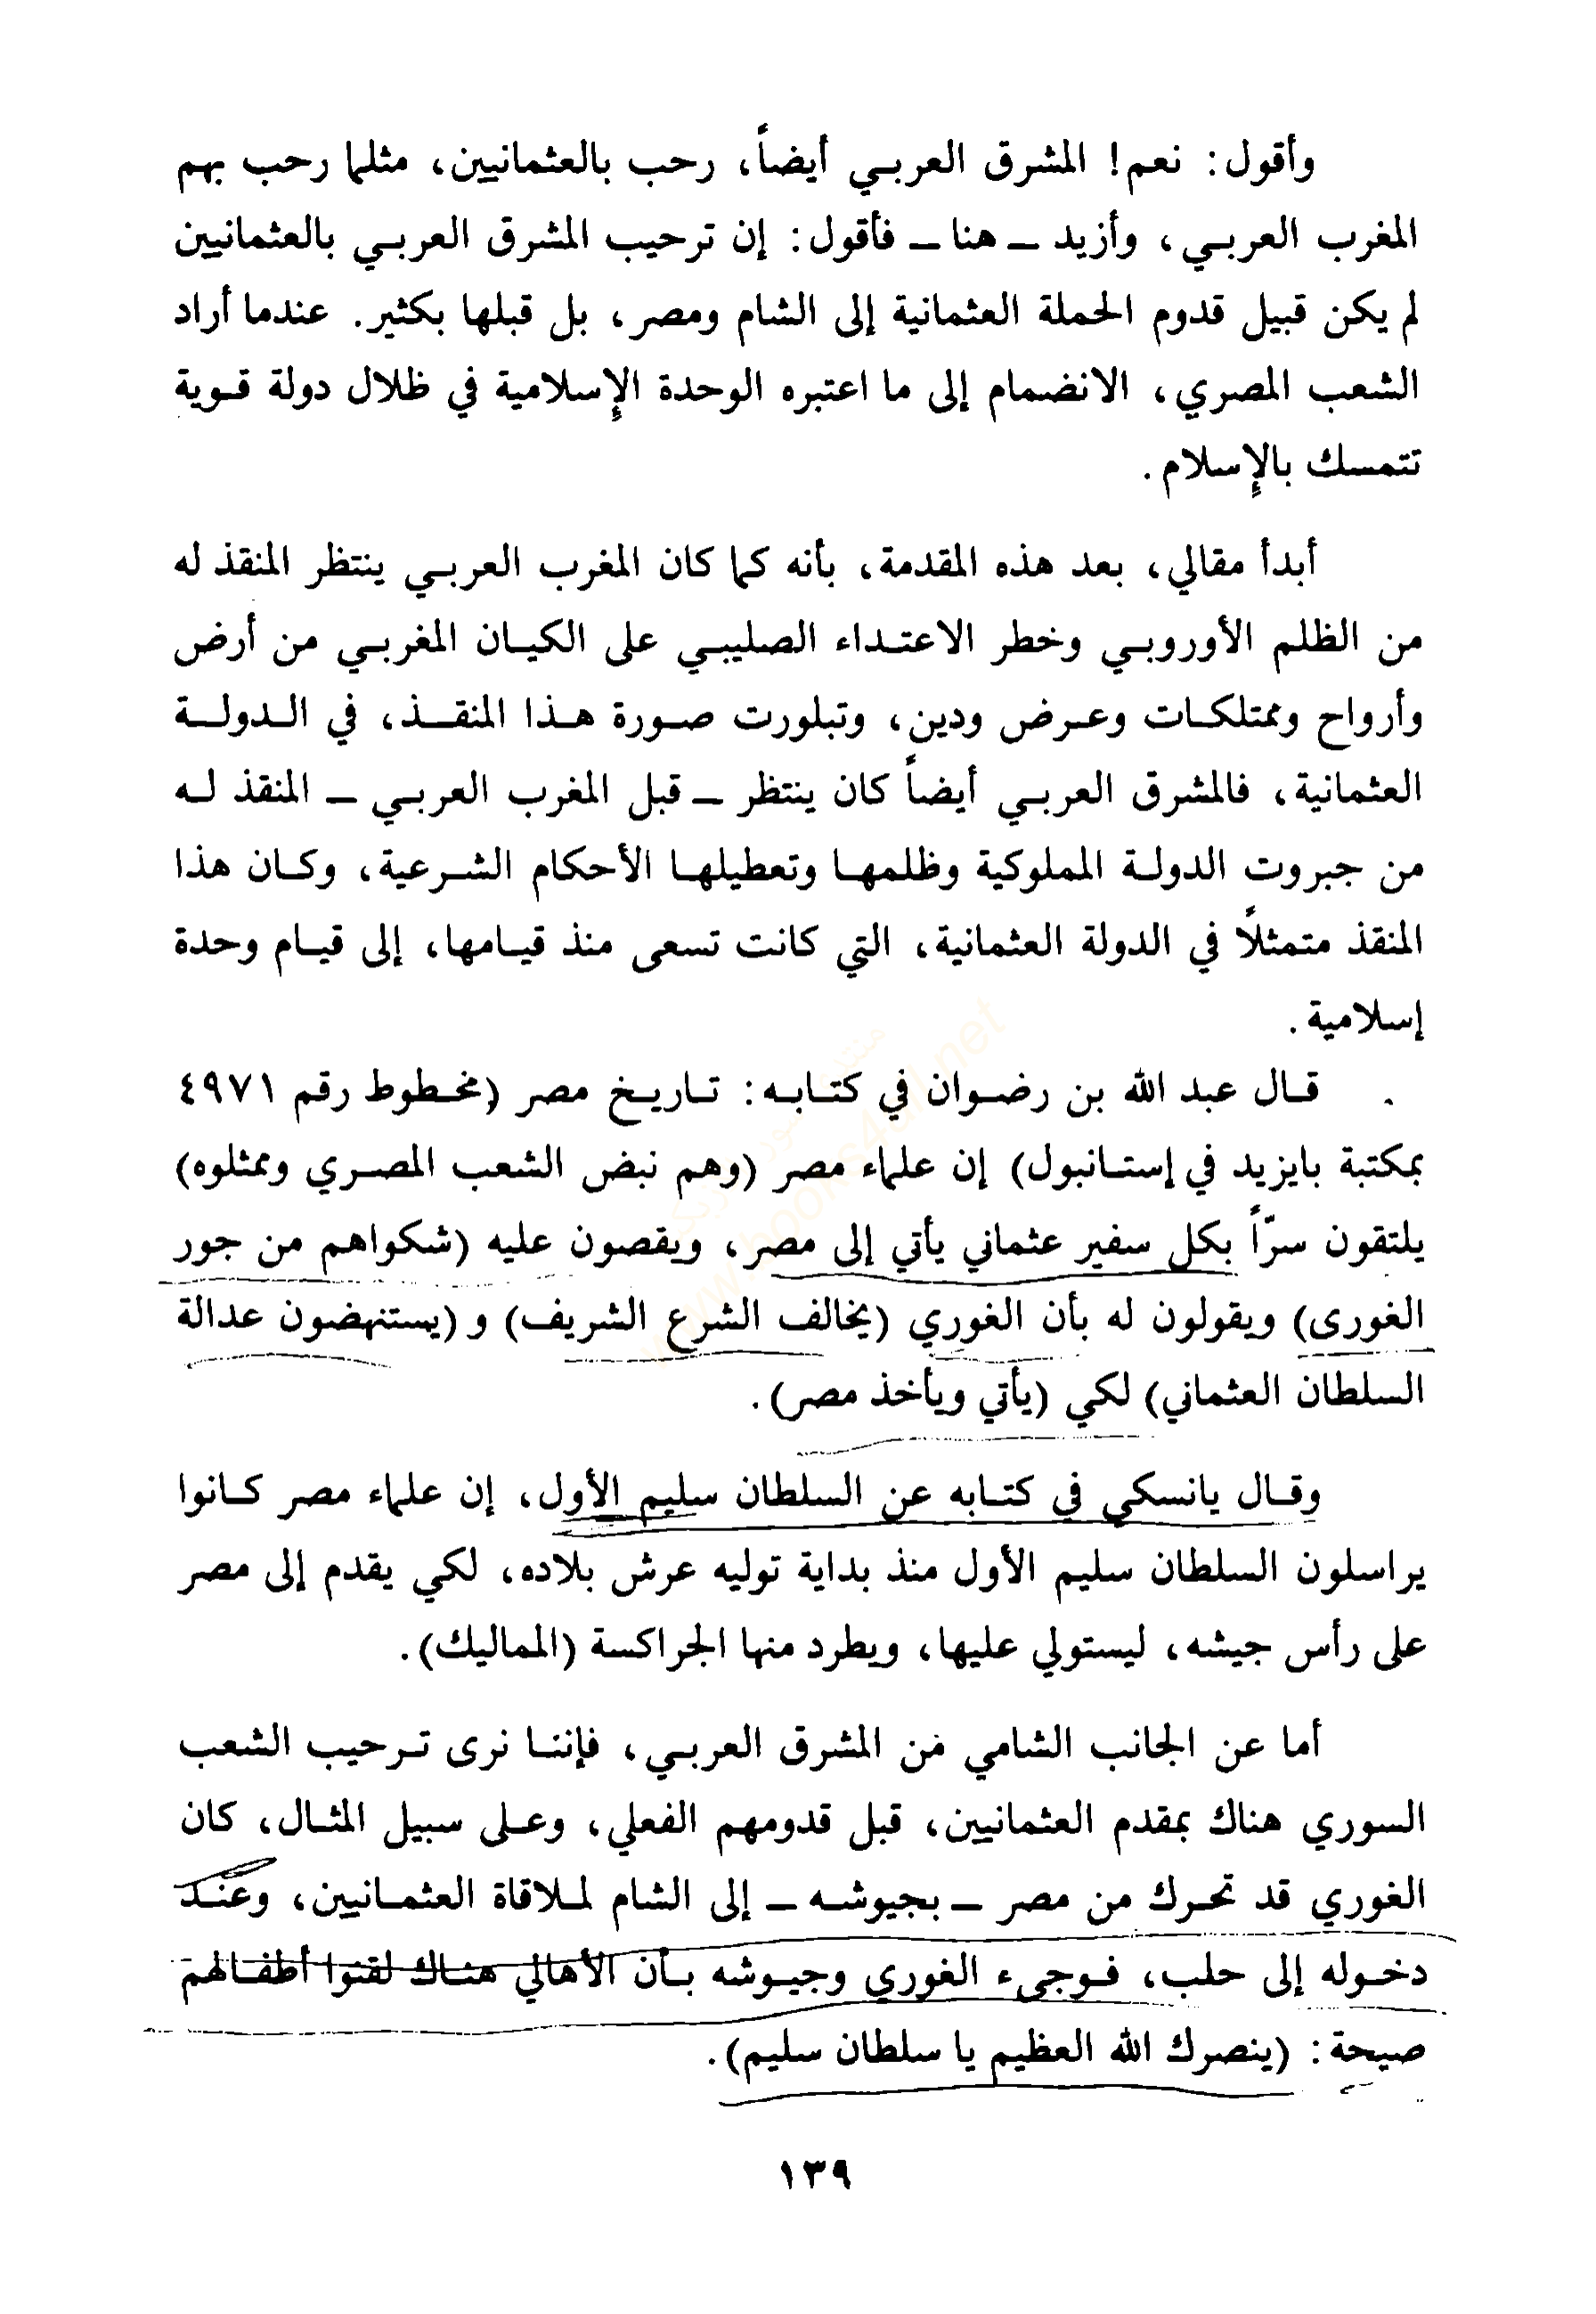 وأقول: نعم! المشرق العربي أيضاً، رحب بالعثمانيين، مثلما رحب بهم
المغرب العربي، وأزيد ــ هنا ــ فأقول: إن ترحيب المشرق العربي بالعثمانيين
لم يكن قبيل قدوم الحملة العثمانية إلى الشام ومصر، بل قبلها بكثير. عندما أراد
الشعب المصري، الانضمام إلى ما اعتبره الوحدة الإسلامية في ظلال دولة قوية
تتمسك بالإسلام.
أبدأ مقالي، بعد هذه المقدمة، بأنه كما كان المغرب العربي ينتظر المنقذ له
من الظلم الأوروبي وخطر الاعتداء الصليبي على الكيان المغربي من أرض
وأرواح وممتلكات وعرض ودين، وتبلورت صورة هذا المنقذ، في الدولة
العثمانية، فالمشرق العربي أيضاً كان ينتظر ــ قبل المغرب العربي ــ المنقذ له
من جبروت الدولة المملوكية وظلمها وتعطيلها الأحكام الشرعية، وكان هذا
المنقذ متمثلاً في الدولة العثمانية، التي كانت تسعى منذ قيامها، إلى قيام وحدة
إسلامية.
قال عبد الله بن رضوان في كتابه: تاريخ مصر (مخطوط رقم ٤٩٧١
بمكتبة بايزيد في إستانبول) إن علماء مصر (وهم نبض الشعب المصري وممثلوه)
يلتقون سرّاً بكل سفير عثماني يأتي إلى مصر، ويقصون عليه (شكواهم من جور
الغورى) ويقولون له بأن الغوري (يخالف الشرع الشريف) و (يستنهضون عدالة
السلطان العثماني) لكي (يأتي ويأخذ مصر).
وقال يانسكي في كتابه عن السلطان سليم الأول، إن علماء مصر كانوا
يراسلون السلطان سليم الأول منذ بداية توليه عرش بلاده، لكي يقدم إلى مصر
على رأس جيشه، ليستولي عليها، ويطرد منها الجراكسة (المماليك).
أما عن الجانب الشامي من المشرق العربي، فإننا نرى ترحيب الشعب
السوري هناك بمقدم العثمانيين، قبل قدومهم الفعلي، وعلى سبيل المثال، كان
الغوري قد تحرك من مصر ــ بجيوشه ــ إلى الشام لملاقاة العثمانيين، وعند
دخوله إلى حلب، فوجىء الغوري وجيوشه بأن الأهالي هناك لقنوا أطفالهم
صيحة: (ينصرك الله العظيم يا سلطان سليم).
١٣٩
www.books4all.net